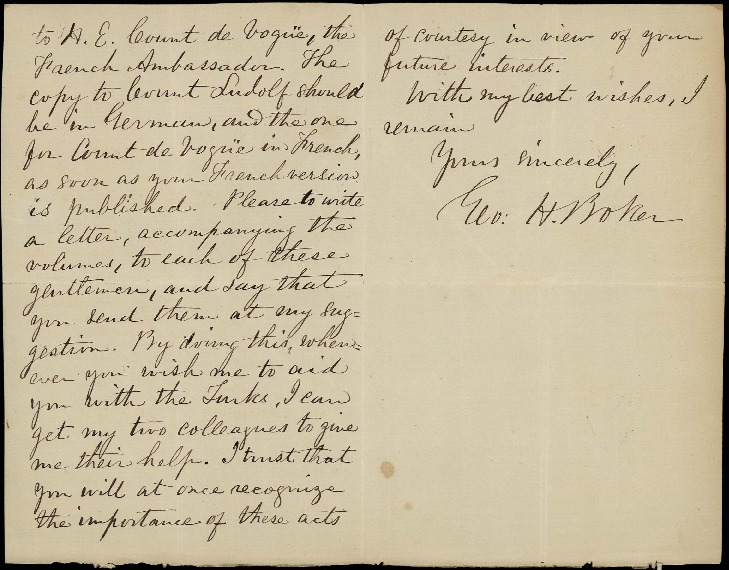 to H. E. Count de Vogüe, the
French Ambassador. The
copy to Count Ludolf should
be in German, and the one
for Count de Vogüe in French,
as soon as your French version
is published. Please to write
a letter, accompanying the
volumes, to each of these
gentlemen, and say that
you send them at my sug=
gestion. By doing this, when=
ever you wish me to aid
you with the Turks, I can
get my two colleagues to give
me their help. I trust that
you will at once recognize
the importance of these acts
of courtesy in view of your
future interests.
With my best wishes, I
remain
Yours sincerely,
Geo: H. Boker